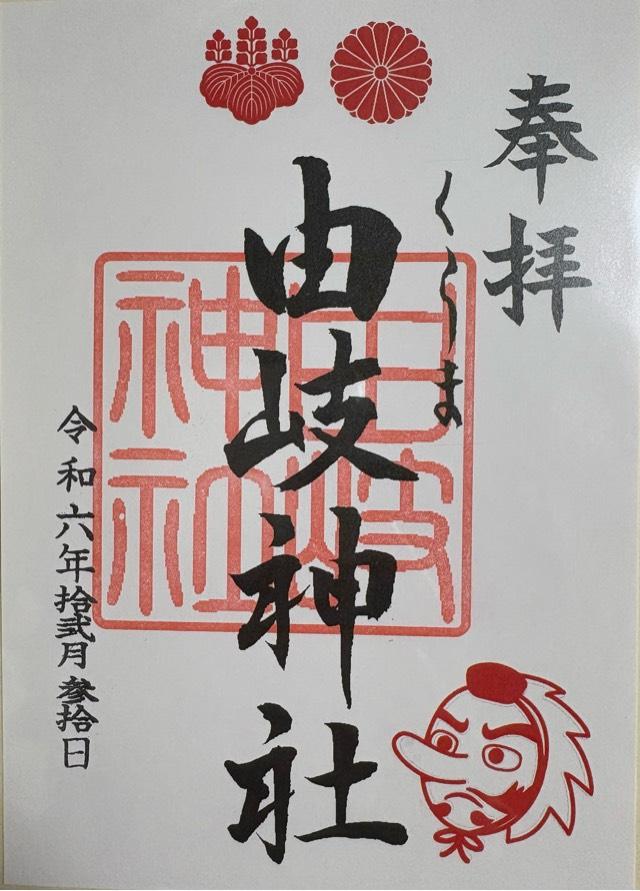 奉拝
くらま
由岐神社
由岐神社
令和六年拾弐月参拾日